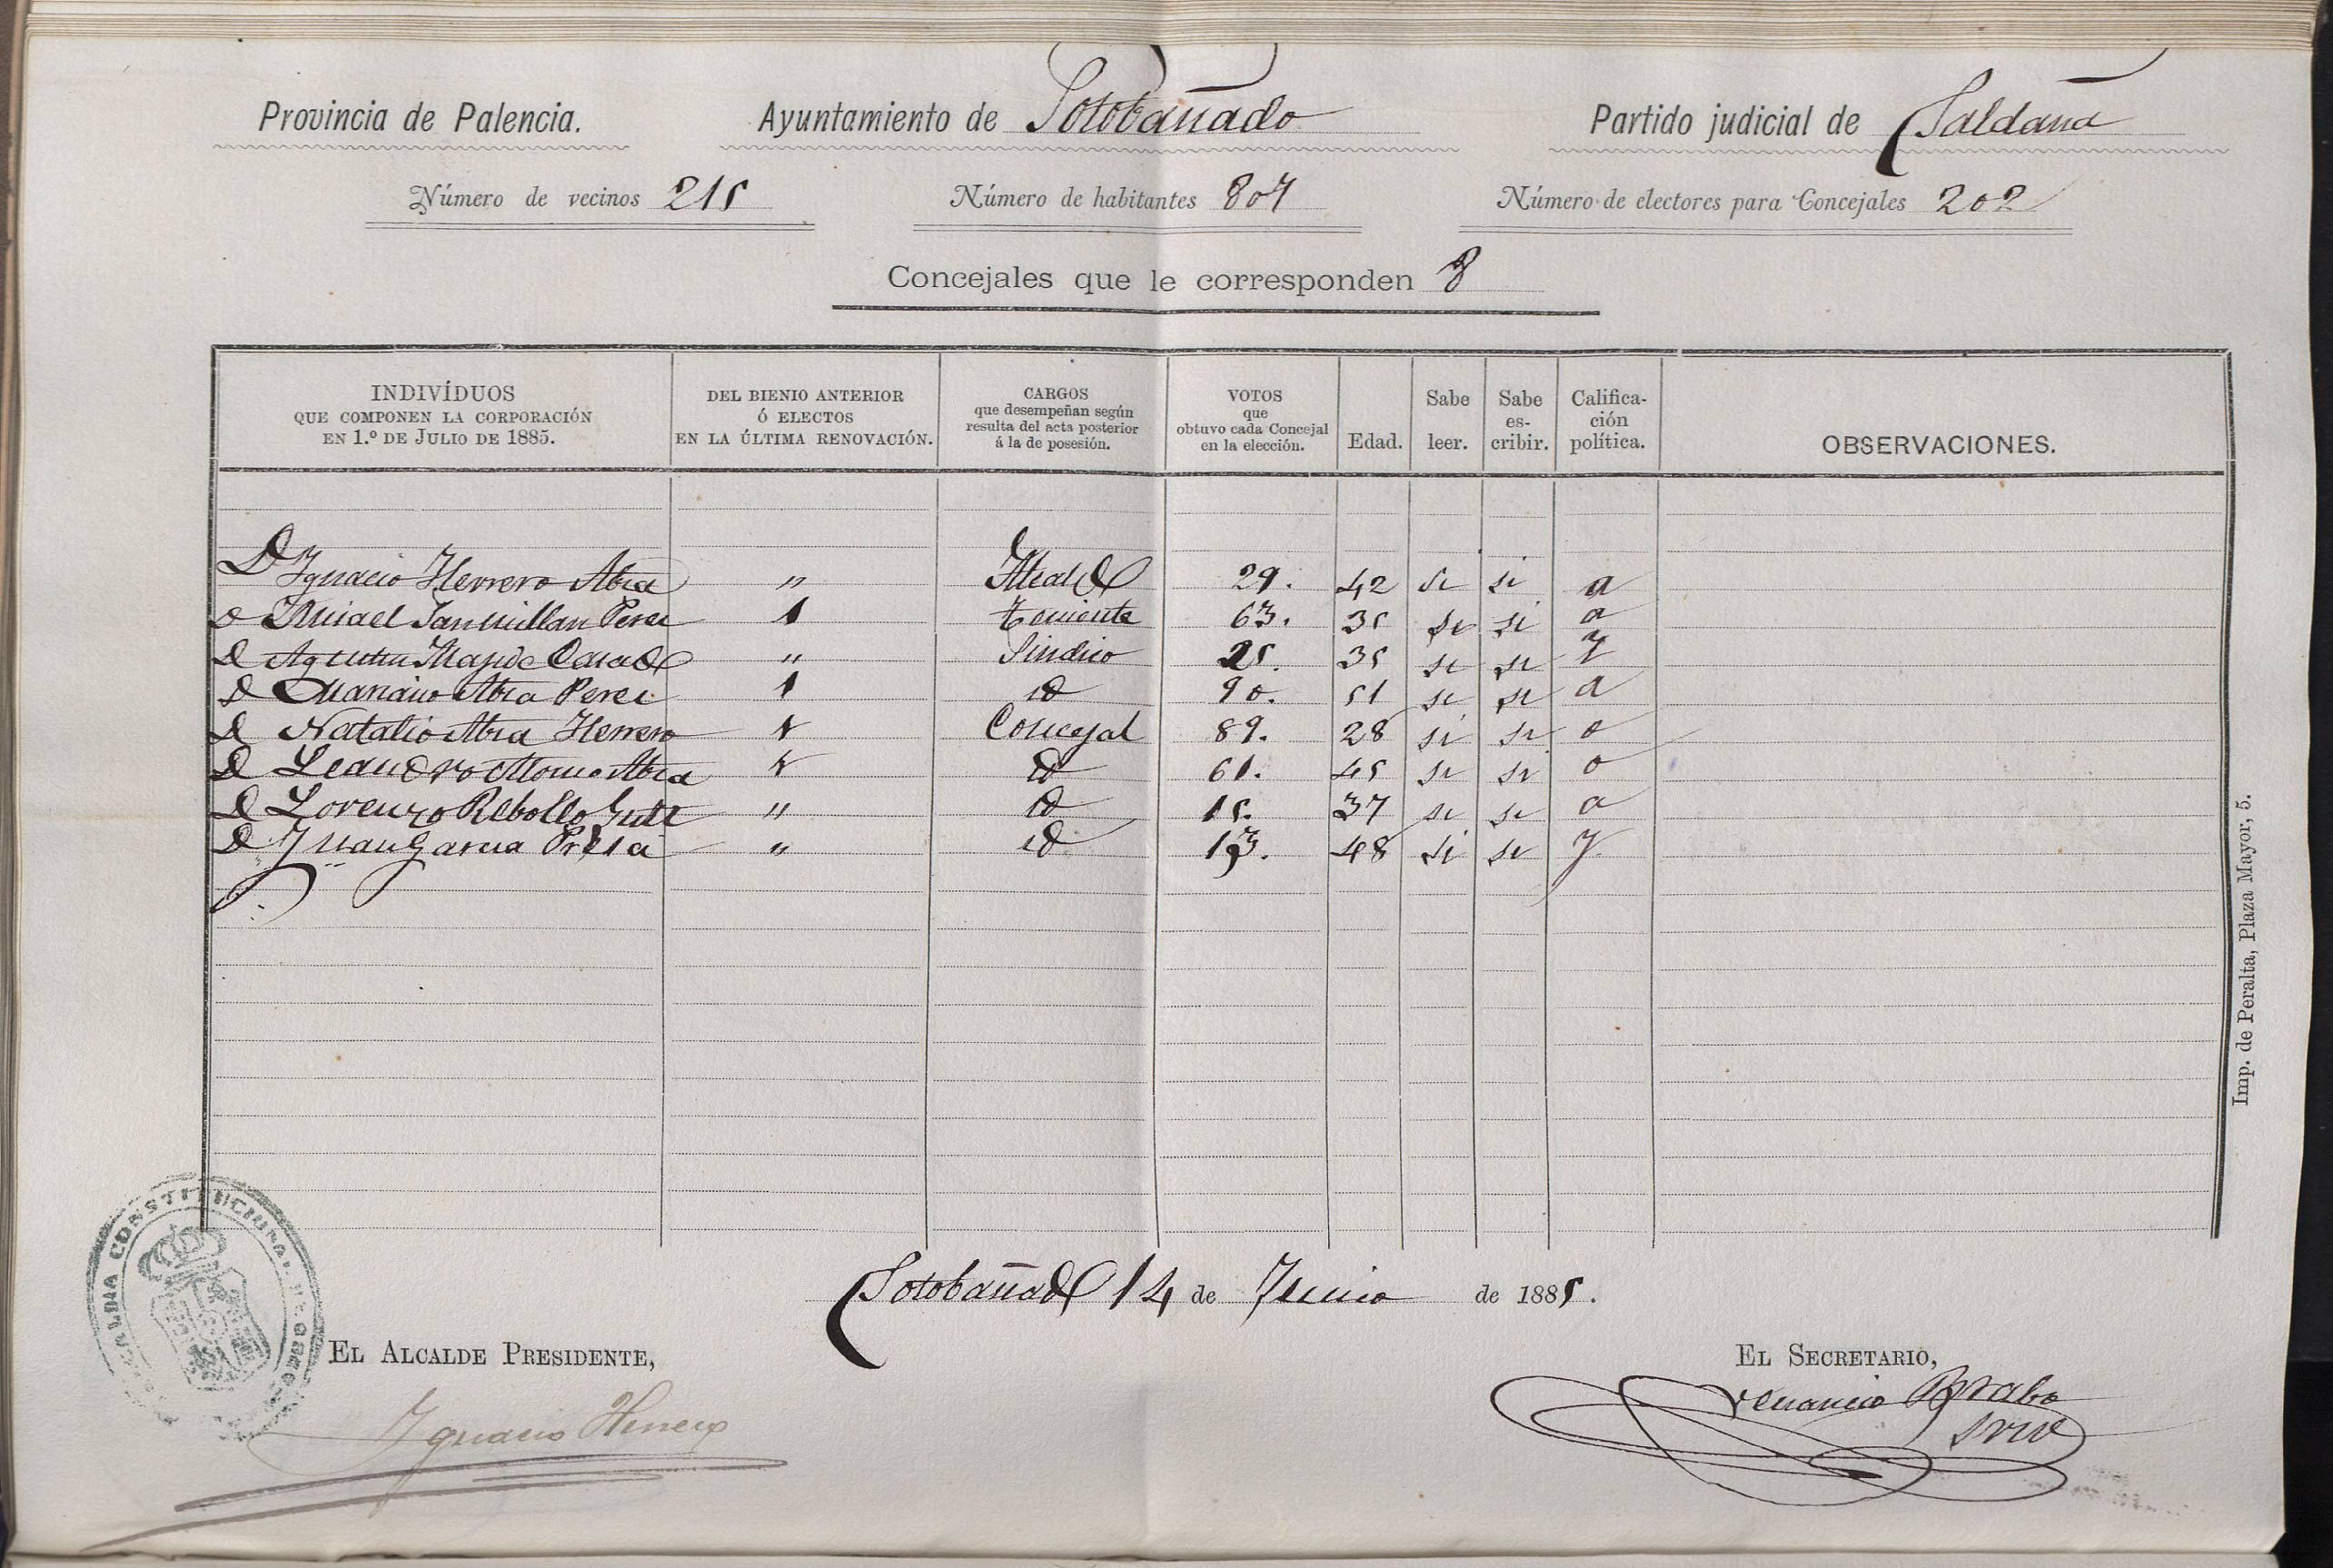 Provincia de Palencia. Ayuntamiento de Sotobañado Partido judicial de Saldaña
Número de vecinos 215 Número de habitantes 807 Número de electores para Concejales 202
Concejales que le corresponden 8
INDIVÍDUOS QUE COMPONEN LA CORPORACIÓN EN 1.º DE JULIO DE 1885. DEL BIENIO ANTERIOR Ó ELECTOS EN LA ÚLTIMA RENOVACIÓN. CARGOS que desempeñan según resulta del acta posterior á la de posesión. VOTOS que obtuvo cada Concejal en la elección. Edad. Sabe leer. Sabe es-cribir. Califica-ción política. OBSERVACIONES.
D Ignacio Herrero Abia " Alcalde 29. 42 si si a
D Misael Sanmillan Perez 1 Teniente 63. 35 si si a
D Agustin " Sindico 25. 35 si si y
D Mariano Abia Perez 1 id 90. 51 si si a
D Natalio Abia Herrero 1 Concejal 89. 28 si si o
D Leandro Abia 1 id 61. 45 si si o
D Lorenzo Rebollo Gutz " id 15. 37 si si a
D Juan Garcia Presa " id 13. 48 si si y
Sotobañado 14 de Junio de 1885.
EL ALCALDE PRESIDENTE, EL SECRETARIO,
Ignacio Herrero Venancio Brabo
srio
ALCALDIA CONSTITUCIONAL DE
Imp. de Peralta, Plaza Mayor, 5.